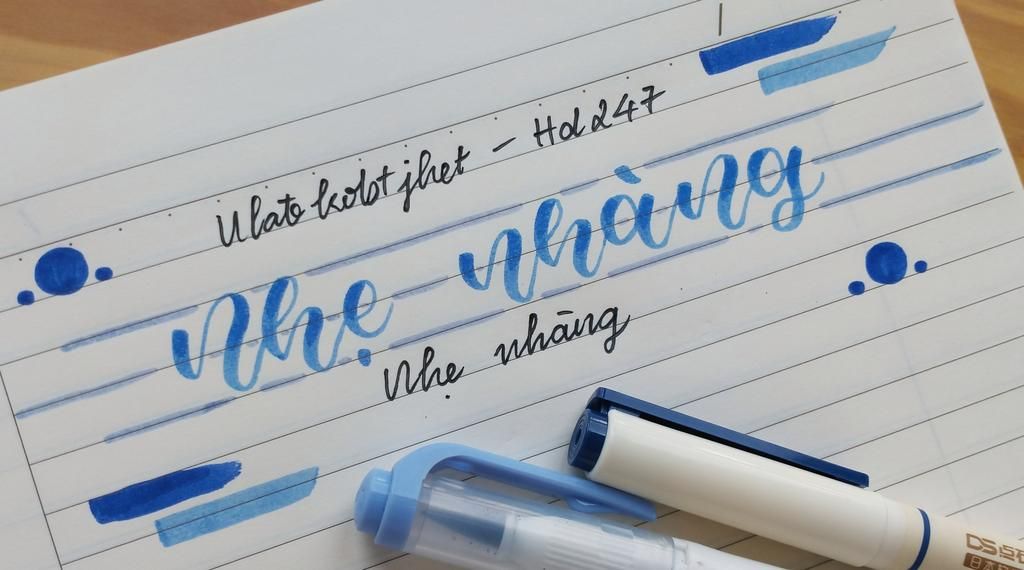 Ulatokolotjhet - Hd247
Nhẹ nhàng
Nhẹ nhàng
DS点石
日本